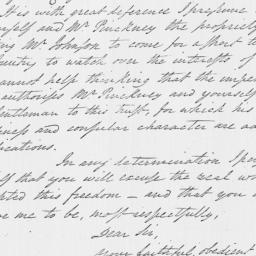 It is with great deference I presume
self and Mr Pinckney the propriety
ing Mr Johnson to come for a short t
ountry to watch over the interests of
cannot help thinking that the
authorises Mr Pinckney and yourself
ntleman to this trust, for which his
iness and consular character are
ications.
In any determination I
f that you will excuse the zeal
pted this freedom — and that you
ve me to be, most respectfully,
Dear Sir,
your faithful, obedient